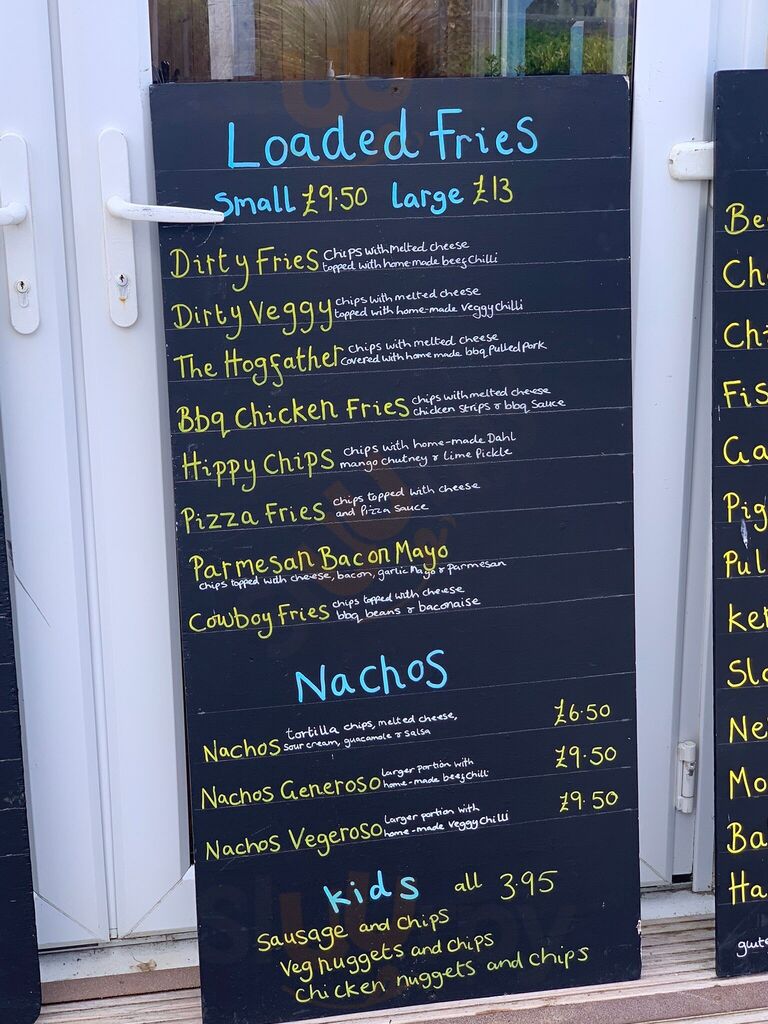 Loaded Fries
Small £9.50 Large £13
Dirty Fries chips with melted cheese
topped with home-made beef chilli
Dirty Veggy chips with melted cheese
topped with home-made veggy chilli
The Hogfather chips with melted cheese
covered with home made bbq pulled pork
Bbq Chicken Fries chips with melted cheese
chicken strips & bbq sauce
Hippy Chips chips with home-made Dahl
mango chutney & lime pickle
Pizza Fries chips topped with cheese
and pizza sauce
Parmesan Bacon Mayo
chips topped with cheese, bacon, garlic mayo & parmesan
Cowboy Fries chips topped with cheese
bbq beans & baconaise
Nachos
Nachos tortilla chips, melted cheese,
sour cream, guacamole & salsa £6.50
Nachos Generoso larger portion with
home-made beef chilli £9.50
Nachos Vegeroso larger portion with
home-made veggy chilli £9.50
kids all 3.95
Sausage and chips
Veg nuggets and chips
Chicken nuggets and chips